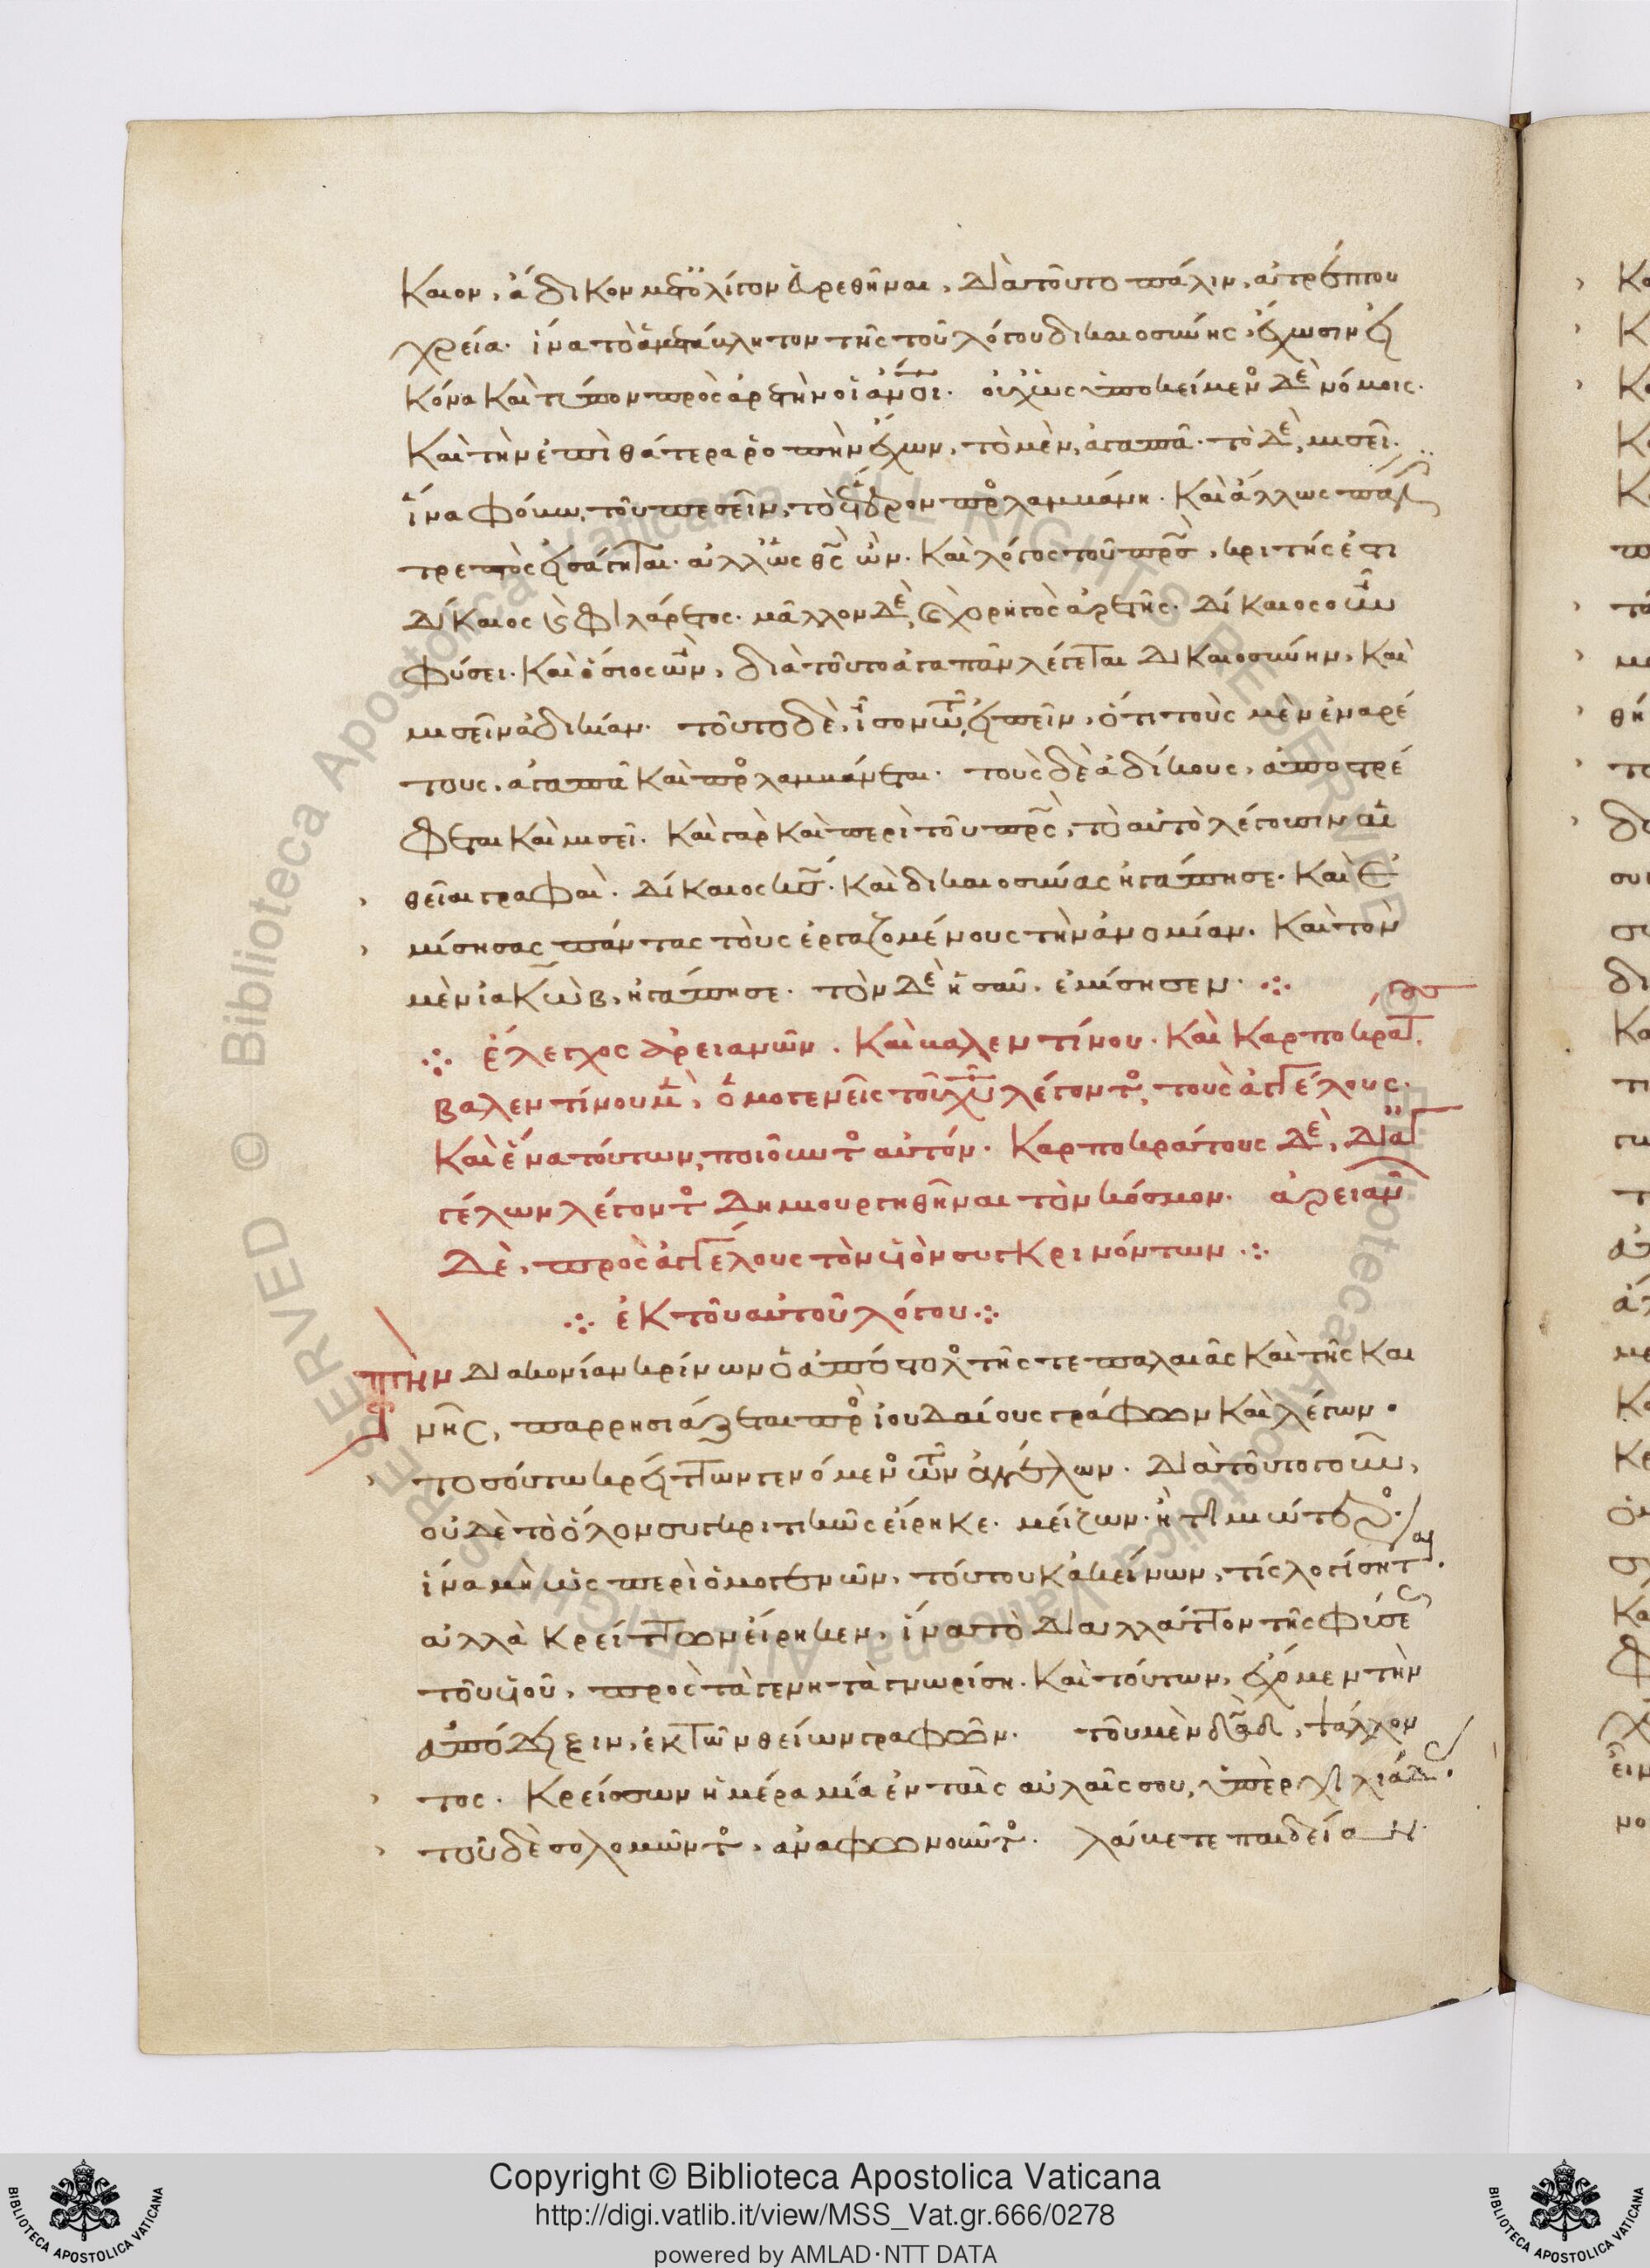 καιον, ἄδικον μετ' ὀλίγον εὑρεθῆναι, διὰ τοῦτο πάλιν, ἀτρέπτου
χρεία. ἵνα τὸ ἀμετάβλητον τῆς τοῦ λόγου δικαιοσύνης, ἔχωσιν εἰ
κόνα καὶ τύπον πρὸς ἀρετὴν οἱ ἄνοι. οὐχ ὡς ὑποκείμενος δὲ νόμοις.
καὶ τὴν ἐπὶ θάτερα ῥοπὴν ἔχων, τὸ μὲν, ἀγαπᾷ. τὸ δὲ, μισεῖ.
ἵνα φόβω, τοῦ πεσεῖν, τὸ ἕτερον προσλαμβάνη. καὶ ἄλλως πάλιν
τρεπτὸς εἰσάγηται. ἀλλ' ὡς θς ὢν. καὶ λόγος τοῦ πρς, κριτής ἐστι
δίκαιος καὶ φιλάρετος. μᾶλλον δὲ, χορηγὸς ἀρετῆς. δίκαιος οὖν
φύσει. καὶ ὅσιος ὢν, διὰ τοῦτο ἀγαπᾶν λέγεται δικαιοσύνην, καὶ
μισεῖν ἀδικίαν. τοῦτο δὲ, ἴσον τῶ εἰπεῖν, ὅτι τοὺς μὲν ἐναρέ
τους, ἀγαπᾷ καὶ προσλαμβάνεται. τοὺς δὲ ἀδίκους, ἀποστρέ
φεται καὶ μισεῖ. καὶ γὰρ καὶ περὶ τοῦ πρς, τὸ αὐτὸ λέγουσιν αἱ
θεῖαι γραφαὶ. δίκαιος κς. καὶ δικαιοσύνας ἠγάπησε. καὶ ἐ
μίσησας πάντας τοὺς ἐργαζομένους τὴν ἀνομίαν. καὶ τὸν
μὲν ἰακὼβ, ἠγάπησε. τὸν δὲ ἠσαῦ, ἐμίσησεν.
ἔλεγχος ἀρειανῶν. καὶ βαλεντίνου. καὶ καρποκράτους.
βαλεντίνου μὲν, ὁμογενεῖς τοῦ χυ λέγοντος, τοὺς ἀγγέλους.
καὶ ἕνα τούτων, ποιοῦντος αὐτόν. καρποκράτους δὲ, δι' ἀγ
γέλων λέγοντος δημιουργηθῆναι τὸν κόσμον. ἀρειανῶν
δὲ, πρὸς ἀγγέλους τὸν υἱὸν συγκρινόντων
ἐκ τοῦ αὐτοῦ λόγου
τὴν διακονίαν κρίνων ὁ ἀπόστολος τῆς τε παλαιᾶς καὶ τῆς και
νῆς, παρρησιάζεται πρὸς ἰουδαίους γράφων καὶ λέγων.
τοσούτω κρείττων γενόμενος τῶν ἀγγέλων. διὰ τοῦτο γοῦν,
οὐδὲ τὸ ὅλον συγκριτικῶς εἴρηκε. μείζων. ἢ τιμιώτερος.
ἵνα μὴ ὡς περὶ ὁμογενῶν, τούτου κἀκείνων, τίς λογίσηται.
ἀλλὰ κρείττων εἴρηκεν, ἵνα τὸ διαλλάττον τῆς φύσεως
τοῦ υἱοῦ, πρὸς τὰ γενητὰ γνωρίση. καὶ τούτων, ἔχομεν τὴν
ἀπόδειξιν, ἐκ τῶν θείων γραφῶν. τοῦ μὲν δαδ, ψάλλον
τος. κρείσσων ἡμέρα μία ἐν ταῖς αὐλαῖς σου, ὑπὲρ χιλιάδας.
τοῦ δὲ σολομῶντος, ἀναφωνοῦντος. λάβετε παιδείαν
Copyright © Biblioteca Apostolica Vaticana
http://digi.vatlib.it/view/MSS_Vat.gr.666/0278
powered by AMLAD·NTT DATA